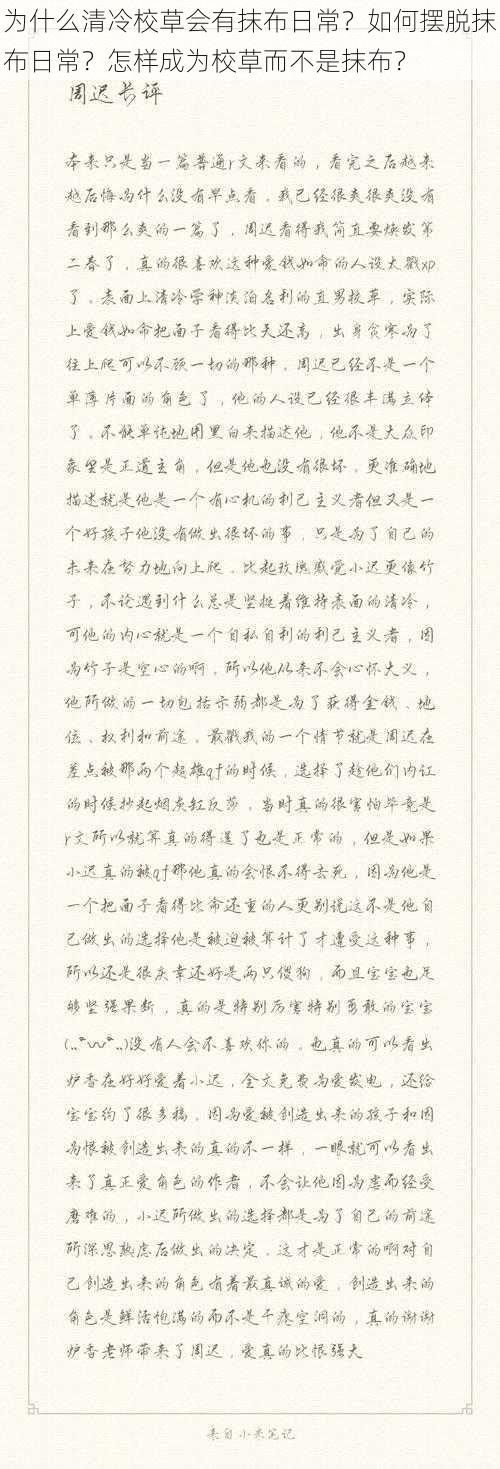 为什么清冷校草会有抹布日常？如何摆脱抹
布日常？怎样成为校草而不是抹布？
周迟长评
本来只是当一篇普通r文来看的，看完之后越来
越后悔为什么没有早点看。我已经很爽很爽没有
看到那么爽的一篇了，周迟看得我简直要焕发第
二春了，真的很喜欢这种爱钱如命的人设大戳xp
了。表面上清冷学神淡泊名利的直男校草，实际
上爱钱如命把面子看得比天还高，出身贫寒为了
往上爬可以不顾一切的那种。周迟已经不是一个
单薄片面的角色了，他的人设已经很丰满立体
了。不能单纯地用黑白来描述他，他不是大众印
象里是正道主角，但是他也没有很坏。更准确地
描述就是他是一个有心机的利己主义者但又是一
个好孩子他没有做出很坏的事，只是为了自己的
未来在努力地向上爬。比起玫瑰感觉小迟更像竹
子，不论遇到什么总是坚挺着维持表面的清冷，
可他的内心就是一个自私自利的利己主义者，因
为竹子是空心的啊。所以他从来不会心怀大义，
他所做的一切包括示弱都是为了获得金钱、地
位、权利和前途。最戳我的一个情节就是周迟在
差点被那两个超雄qf的时候，选择了趁他们内讧
的时候抄起烟灰缸反莎，当时真的很害怕毕竟是
r文所以就算真的得逞了也是正常的，但是如果
小迟真的被qf那他真的会恨不得去死，因为他是
一个把面子看得比命还重的人更别说这不是他自
己做出的选择他是被迫被算计了才遭受这种事，
所以还是很庆幸还好是两只傻狗，而且宝宝也足
够坚强果断，真的是特别厉害特别勇敢的宝宝
(„ᵕᴗᵕ„)没有人会不喜欢你的。也真的可以看出
炉香在好好爱着小迟，全文免费为爱发电，还给
宝宝约了很多稿。因为爱被创造出来的孩子和因
为恨被创造出来的真的不一样，一眼就可以看出
来了真正爱角色的作者，不会让他因为虐而经受
磨难的，小迟所做出的选择都是为了自己的前途
所深思熟虑后做出的决定。这才是正常的啊对自
己创造出来的角色有着最真诚的爱，创造出来的
角色是鲜活饱满的而不是干瘪空洞的，真的谢谢
炉香老师带来了周迟，爱真的比恨强大
来自小米笔记